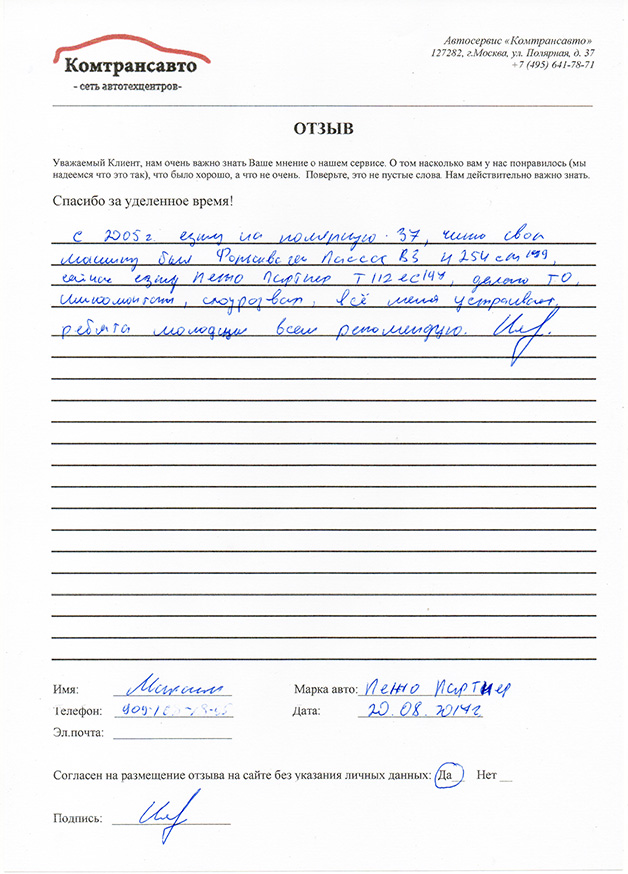 Комтрансавто
- сеть автотехцентров-
Автосервис «Комтрансавто»
127282, г.Москва, ул. Полярная, д. 37
+7 (495) 641-78-71
ОТЗЫВ
Уважаемый Клиент, нам очень важно знать Ваше мнение о нашем сервисе. О том насколько вам у нас понравилось (мы
надеемся что это так), что было хорошо, а что не очень. Поверьте, это не пустые слова. Нам действительно важно знать.
Спасибо за уделенное время!
С 2005г. езжу на полярную 37, чиню свою
машину был Фольксваген Пассат В3 254 199,
сейчас езжу Пежо Партнер Т112ес197, делаю ТО,
шиномонтаж, сходразвал, всё меня устраивает,
ребята молодцы всем рекомендую.
Имя: Максим
Марка авто: Пежо Партнер
Телефон:
Дата: 20.08.2014г
Эл.почта:
Согласен на размещение отзыва на сайте без указания личных данных: Да Нет
Подпись: